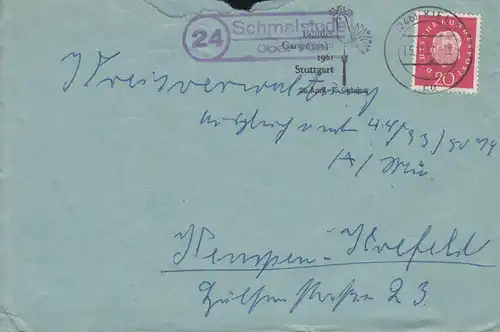 24
Schmalstede
über Kiel
Bundes
Gartenschau
1961
Stuttgart
DEUTSCHE BUNDESPOST
20
Kreisverwaltung
44/93/50
A/Mü
Kempen-Krefeld
Hülser Straße 23